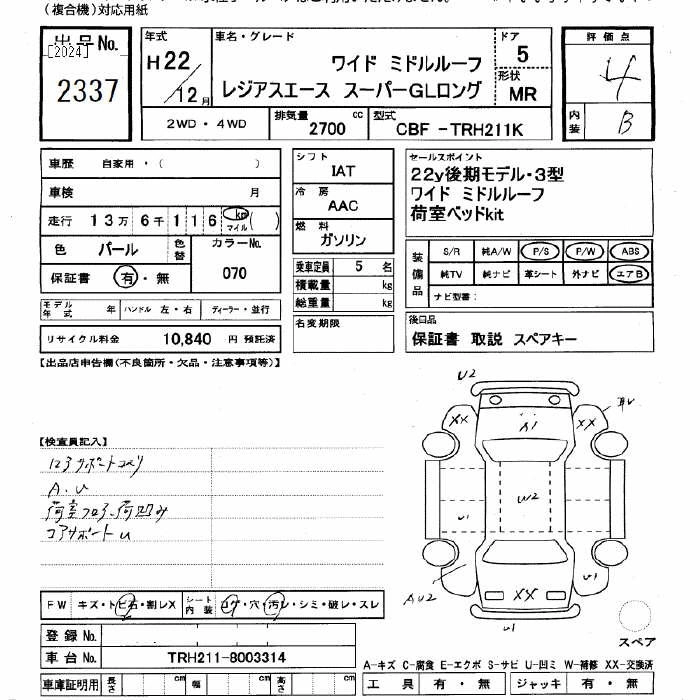 (複合機)対応用紙
出品No.
[2024]
2337
年式
H22/12月
車名・グレード
ワイド ミドルルーフ
レジアスエース スーパーGLロング
ドア
5
形状
MR
2WD・4WD
排気量
2700 cc
型式
CBF-TRH211K
評価点
4
内装
B
車歴 自家用・( )
車検 月
走行 13万6千116 km マイル ( )
色 パール 色替
カラーNo.
070
保証書 有・無
モデル年式 年 ハンドル 左・右 ディーラー・並行
リサイクル料金 10,840 円 預託済
シフト
IAT
冷房
AAC
燃料
ガソリン
乗車定員 5 名
積載量 kg
総重量 kg
名変期限
セールスポイント
22y後期モデル・3型
ワイド ミドルルーフ
荷室ベッドkit
装備品
S/R 純A/W P/S P/W ABS
純TV 純ナビ 革シート 外ナビ エアB
ナビ型番:
後日品
保証書 取説 スペアキー
【出品店申告欄(不良箇所・欠品・注意事項等)】
【検査員記入】
A.U
荷室フロアー荷凹み
コアサポートU
U2
XX
A1
XX
W2
U1
U1
AU2
XX
U1
スペア
FW キズ・トビ石・割レX
シート内装 コゲ・穴・汚レ・シミ・破レ・スレ
登録No.
車台No. TRH211-8003314
車庫証明用 長さ cm 幅 cm 高さ cm
A-キズ C-腐食 E-エクボ S-サビ U-凹ミ W-補修 XX-交換済
工具 有・無 ジャッキ 有・無